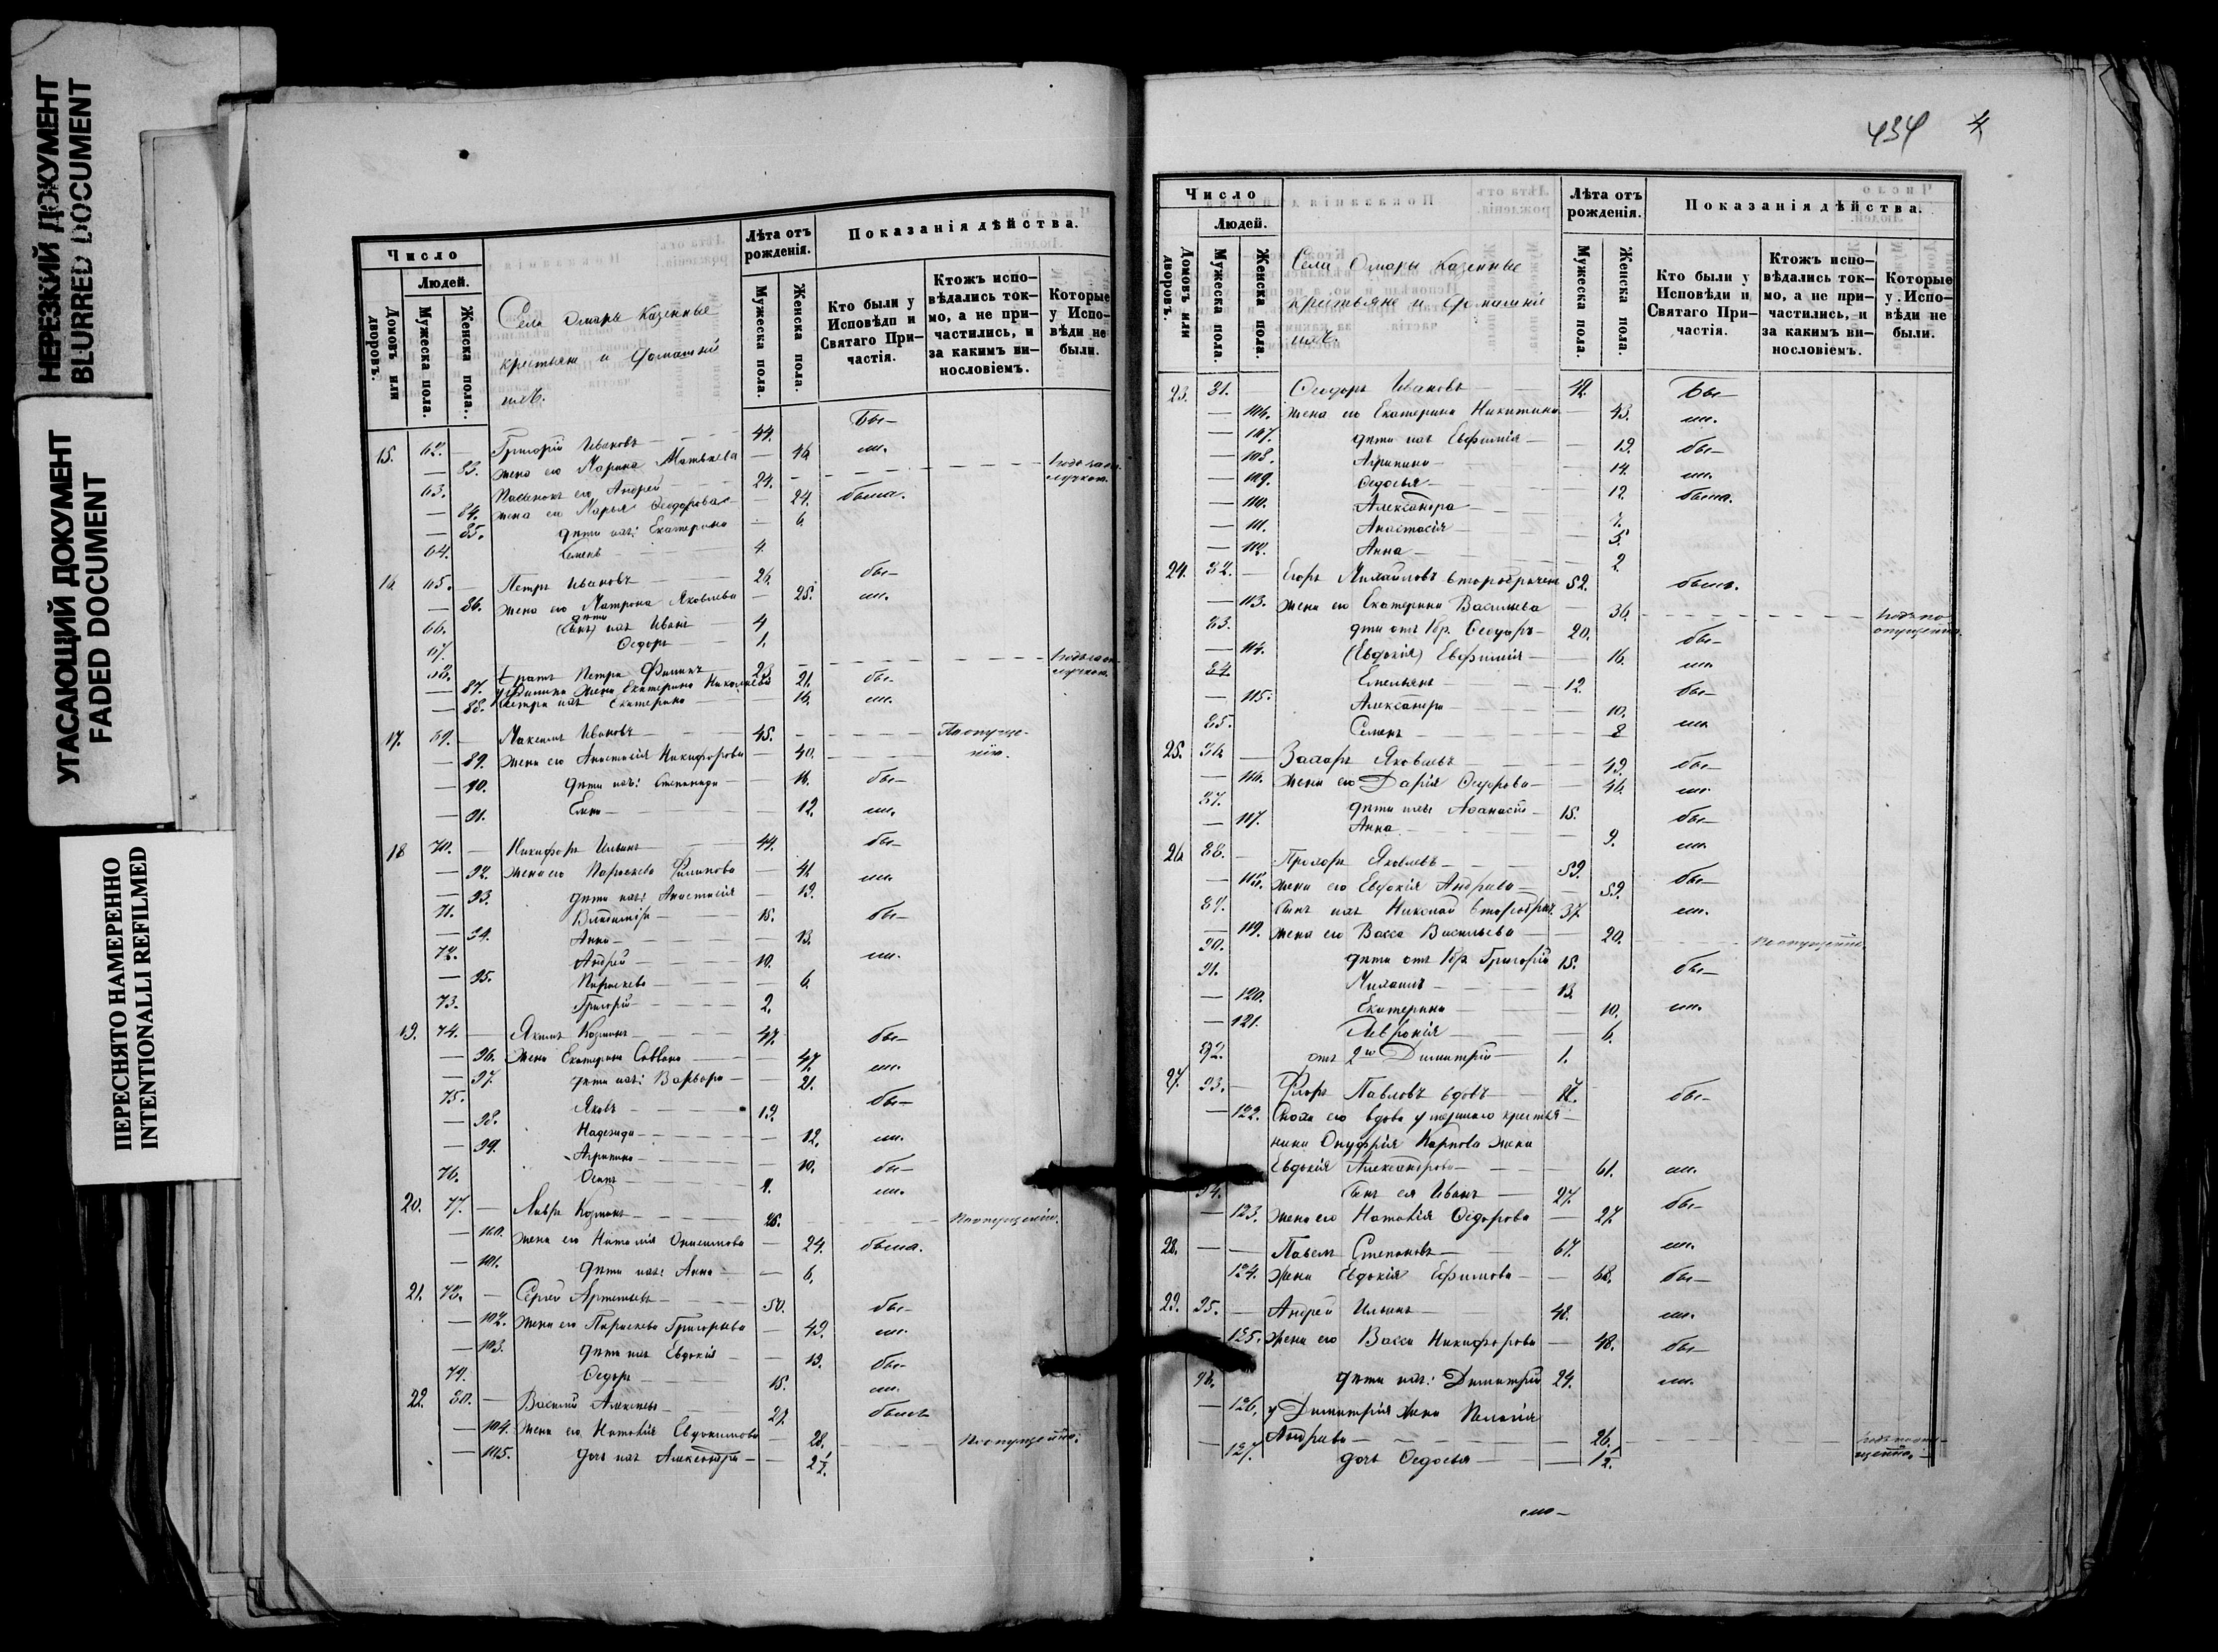 НЕРЕЗКИЙ ДОКУМЕНТ
BLURRED DOCUMENT
УГАСАЮЩИЙ ДОКУМЕНТ
FADED DOCUMENT
ПЕРЕСНЯТО НАМЕРЕННО
INTENTIONALLI REFILMED
Число
Людей.
Домовъ или дворовъ.
Мужеска пола.
Женска пола.
Села Омары Казенные
крестьяне и домашніе
ихъ.
Лѣта отъ рожденія.
Мужеска пола.
Женска пола.
Показанія дѣйства.
Кто были у Исповѣди и Святаго Причастія.
Ктожъ исповѣдались токмо, а не причастились, и за какимъ винословіемъ.
Которые у Исповѣди не были.
15. 62. — Григорій Ивановъ — 44. бы—
— 83. Жена его Марина — 46. ли.
63. Пасынокъ его Андрей — 24.
— 84. Жена его Марья Ѳеодорова — 24. была.
— 85. дѣти ихъ: Екатерина — 6.
64. Семенъ — 4.
16. 65. — Петръ Ивановъ — 26. бы—
— 86. Жена его Матрона Яковлева — 25. ли.
66. дѣти (Сынъ) ихъ Иванъ — 4.
67. Ѳедоръ — 1.
68. Братъ Петра Филипъ — 23.
— 87. Филиппа жена Екатерина — 21. бы—
— 88. Сестра ихъ Екатерина — 16. ли.
17. 69. — Максимъ Ивановъ — 45. По опущенію.
— 89. Жена его Анастасія Никифорова — 40.
— 90. дѣти ихъ: Степанида — 16. бы—
— 91. Елена — 12. ли.
18 70. — Никифоръ Ильинъ — 44. бы—
— 92. Жена его Параскева Филипова — 41. ли.
— 93. дѣти ихъ: Анастасія — 19.
71. Владиміръ — 15. бы—
— 94. Анна — 13.
72. Андрей — 10. ли.
— 95. Параскева — 6.
73. Григорій — 2.
19. 74. — Якимъ Козминъ — 47. бы—
— 96. Жена Екатерина Саввина — 47. ли.
— 97. дѣти ихъ: Варвара — 21.
75. Яковъ — 19. бы—
— 98. Надежда — 12. ли.
— 99. Агрипина — 10. бы—
76. Осипъ — 9. ли.
20. 77. — Лавръ Козминъ — 26. По опущенію.
— 100. Жена его Наталія Онисимова — 24. была.
— 101. дѣти ихъ: Анна — 6.
21. 78. — Сергей Артемьевъ — 50. бы—
— 102. Жена его Параскева Григорьева — 49. ли.
— 103. дѣти ихъ Евдокія — 19. бы—
79. Ѳедоръ — 15. ли.
22. 80. — Василій Алексѣевъ — 27. былъ
— 104. Жена его Наталія Евдокимова — 28. По опущенію.
— 105. дочь ихъ Александра — 2½.
434 4
Число
Людей.
Домовъ или дворовъ.
Мужеска пола.
Женска пола.
Села Омары Казенные
крестьяне и домашніе
ихъ.
Лѣта отъ рожденія.
Мужеска пола.
Женска пола.
Показанія дѣйства.
Кто были у Исповѣди и Святаго Причастія.
Ктожъ исповѣдались токмо, а не причастились, и за какимъ винословіемъ.
Которые у Исповѣди не были.
23. 81. Ѳеодоръ Ивановъ — 42. Бы—
— 106. Жена его Екатерина Никитина — 43. ли.
— 107. дѣти ихъ Евфимія — 19. бы—
— 108. Агрипина — 14. ли.
— 109. Ѳедосья — 12. была.
— 110. Александра — 7.
— 111. Анастасія — 5.
— 112. Анна — 2.
24. 82. — Егоръ Михайловъ второбрачен. 52. былъ.
— 113. Жена его Екатерина Васильева — 36.
83. дѣти отъ 1 бр. Ѳеодоръ — 20. бы—
— 114. (Евдокія) Евфимія — 16. ли.
84. Емельянъ — 12. бы—
— 115. Александра — 10. ли.
85. Семенъ — 8
25. 86. — Захаръ Яковлевъ — 49. бы—
— 116. Жена его Дарія Ѳедорова — 46. ли.
87. дѣти ихъ Аѳанасій — 15. бы—
— 117. Анна — 9. ли.
26. 88. — Прохоръ Яковлевъ — 59. бы—
— 118. Жена его Евдокія Андреева — 59.
89. Сынъ ихъ Николай второбрач. 37. ли.
— 119. Жена его Васса Васильева — 20. По опущенію.
90. дѣти отъ 1 бр. Григорій 15. бы—
91. Михаилъ — 13.
— 120. Екатерина — 10. ли.
— 121. Февронія — 6.
92. отъ 2го Димитрій — 1.
27. 93. — Флоръ Павловъ вдовъ — бы—
— 122. Сноха его вдова умершаго крестья
нина Онуфрія Карпова жена
Евдокія Александрова — 61. ли.
94. Сынъ ея Иванъ — 27. бы—
— 123. Жена его Наталія Ѳедорова — 27.
28. — — Павелъ Степановъ — 67. ли.
124. Жена Евдокія Ефимова — 68. бы—
29. 95. — Андрей Ильинъ — 48. ли.
— 125. Жена его Васса Никифорова — 48. бы—
96. дѣти ихъ: Димитрій 24. ли.
— 126. у Димитрія жена Пелагія
Андреева — 26.
— 127. дочь Ѳедосья — ½.